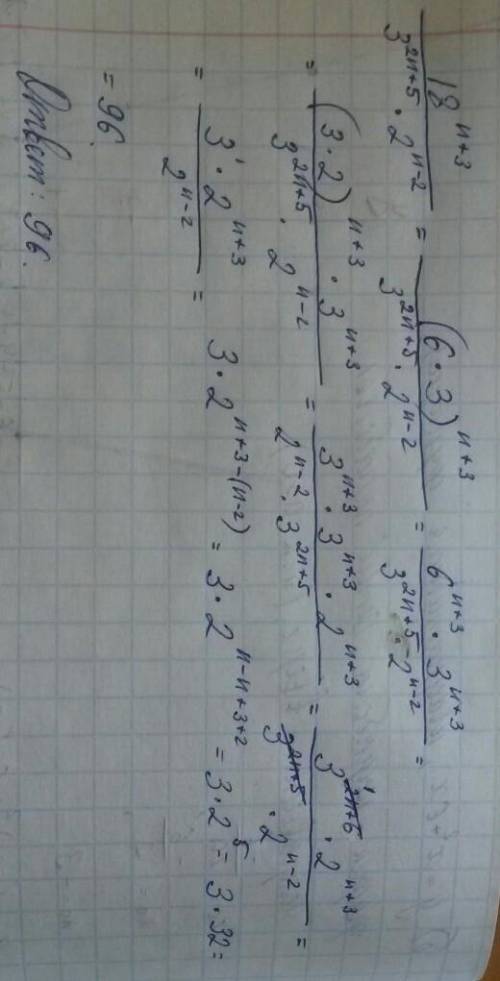 18^{n+3} / (3^{2n+5} · 2^{n-2}) = (6·3)^{n+3} / (3^{2n+5} · 2^{n-2}) = 6^{n+3} · 3^{n+3} / (3^{2n+5} · 2^{n-2}) =
= (3·2)^{n+3} · 3^{n+3} / (3^{2n+5} · 2^{n-2}) = 3^{n+3} · 3^{n+3} · 2^{n+3} / (2^{n-2} · 3^{2n+5}) = 3^{2n+6} 1 · 2^{n+3} / (3^{2n+5} · 2^{n-2}) =
= 3^1 · 2^{n+3} / 2^{n-2} = 3 · 2^{n+3-(n-2)} = 3 · 2^{n-n+3+2} = 3·2^5 = 3·32 =
= 96.
Ответ: 96.